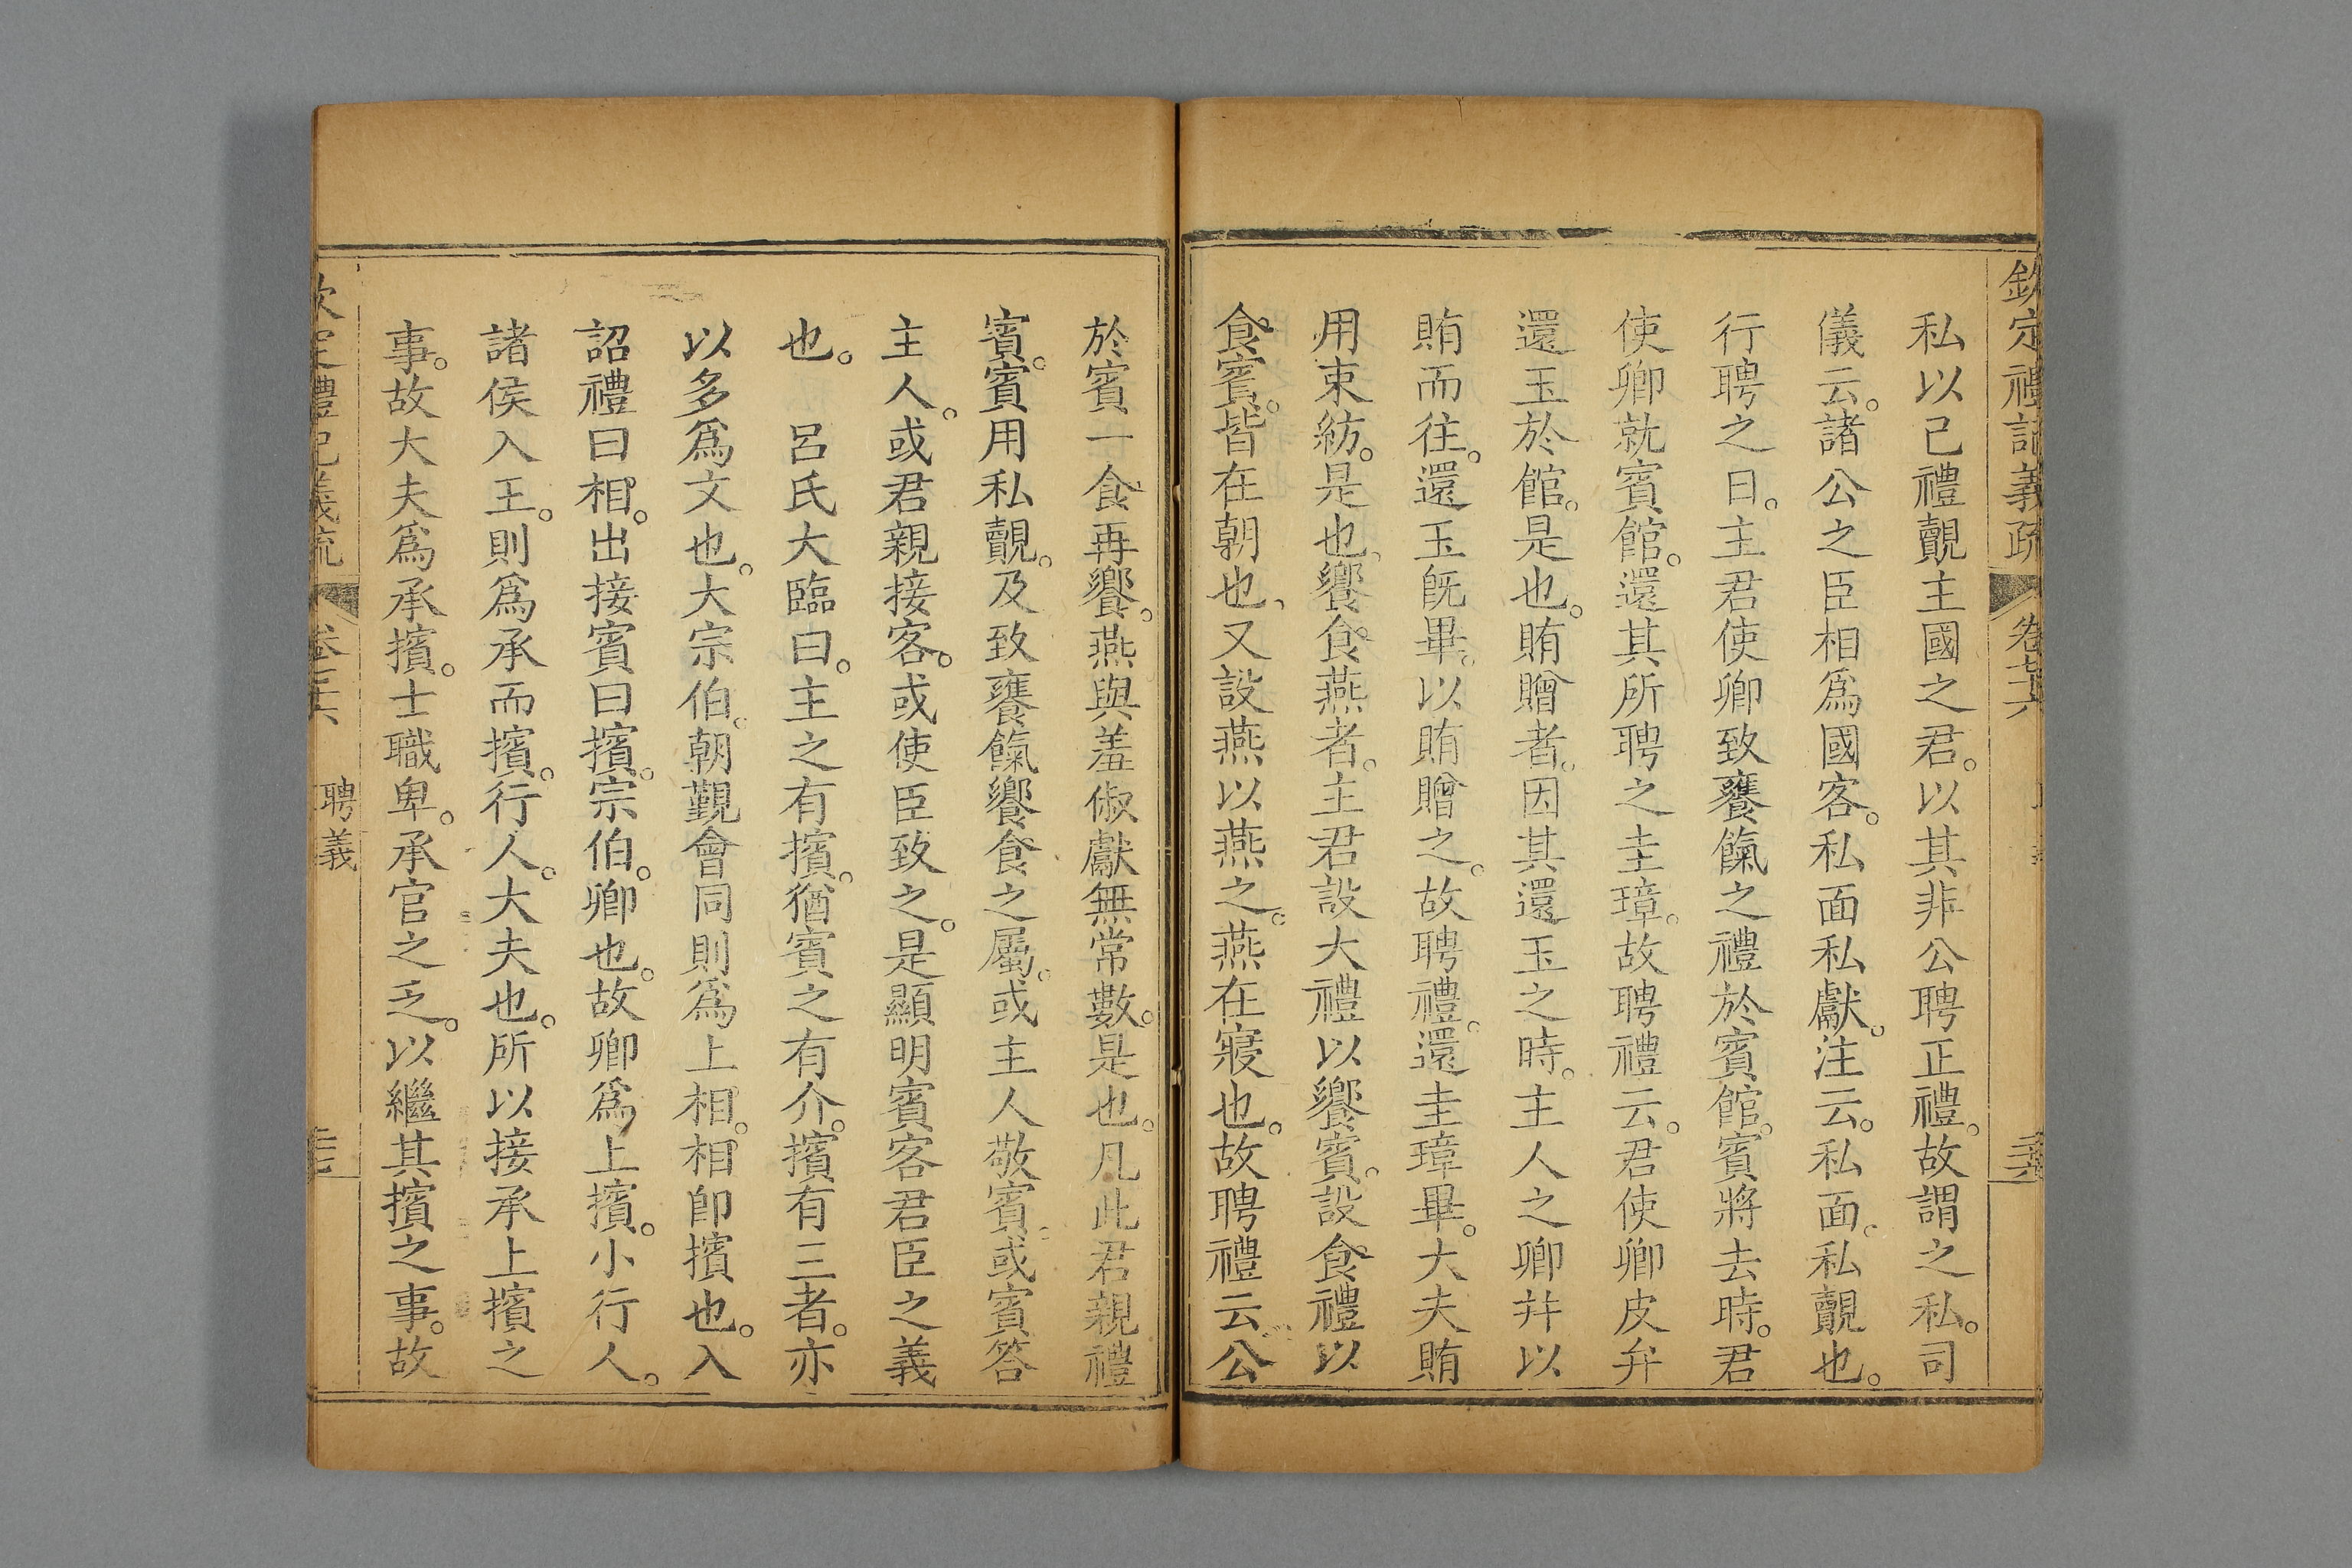 欽定禮記義疏 卷七十六 三十六
私以己禮覿主國之君。以其非公聘正禮。故謂之私。司
儀云。諸公之臣相爲國客。私面私獻。注云。私面。私覿也。
行聘之日。主君使卿致饔餼之禮於賓館。賓將去時。君
使卿就賓館。還其所聘之圭璋。故聘禮云。君使卿皮弁
還玉於館。是也。賄贈者。因其還玉之時。主人之卿幷以
賄而往。還玉旣畢。以賄贈之。故聘禮。還圭璋畢。大夫賄
用束紡。是也、饗食燕者。主君設大禮以饗賓。設食禮以
食賓。皆在朝也、又設燕以燕之。燕在寢也。故聘禮云公
於賓一食再饗。燕與羞俶獻無常數。是也。凡此君親禮
賓。賓用私覿。及致饔餼饗食之屬。或主人敬賓。或賓答
主人。或君親接客。或使臣致之。是顯明賓客君臣之義
也。 呂氏大臨曰。主之有擯。猶賓之有介。擯有三者。亦
以多爲文也。大宗伯。朝覲會同則爲上相。相卽擯也。入
詔禮曰相。出接賓曰擯。宗伯。卿也。故卿爲上擯。小行人。
諸侯入王。則爲承而擯。行人。大夫也。所以接承上擯之
事。故大夫爲承擯。士職卑。承官之乏。以繼其擯之事。故
欽定禮記義疏 卷七十六 聘義 三十七